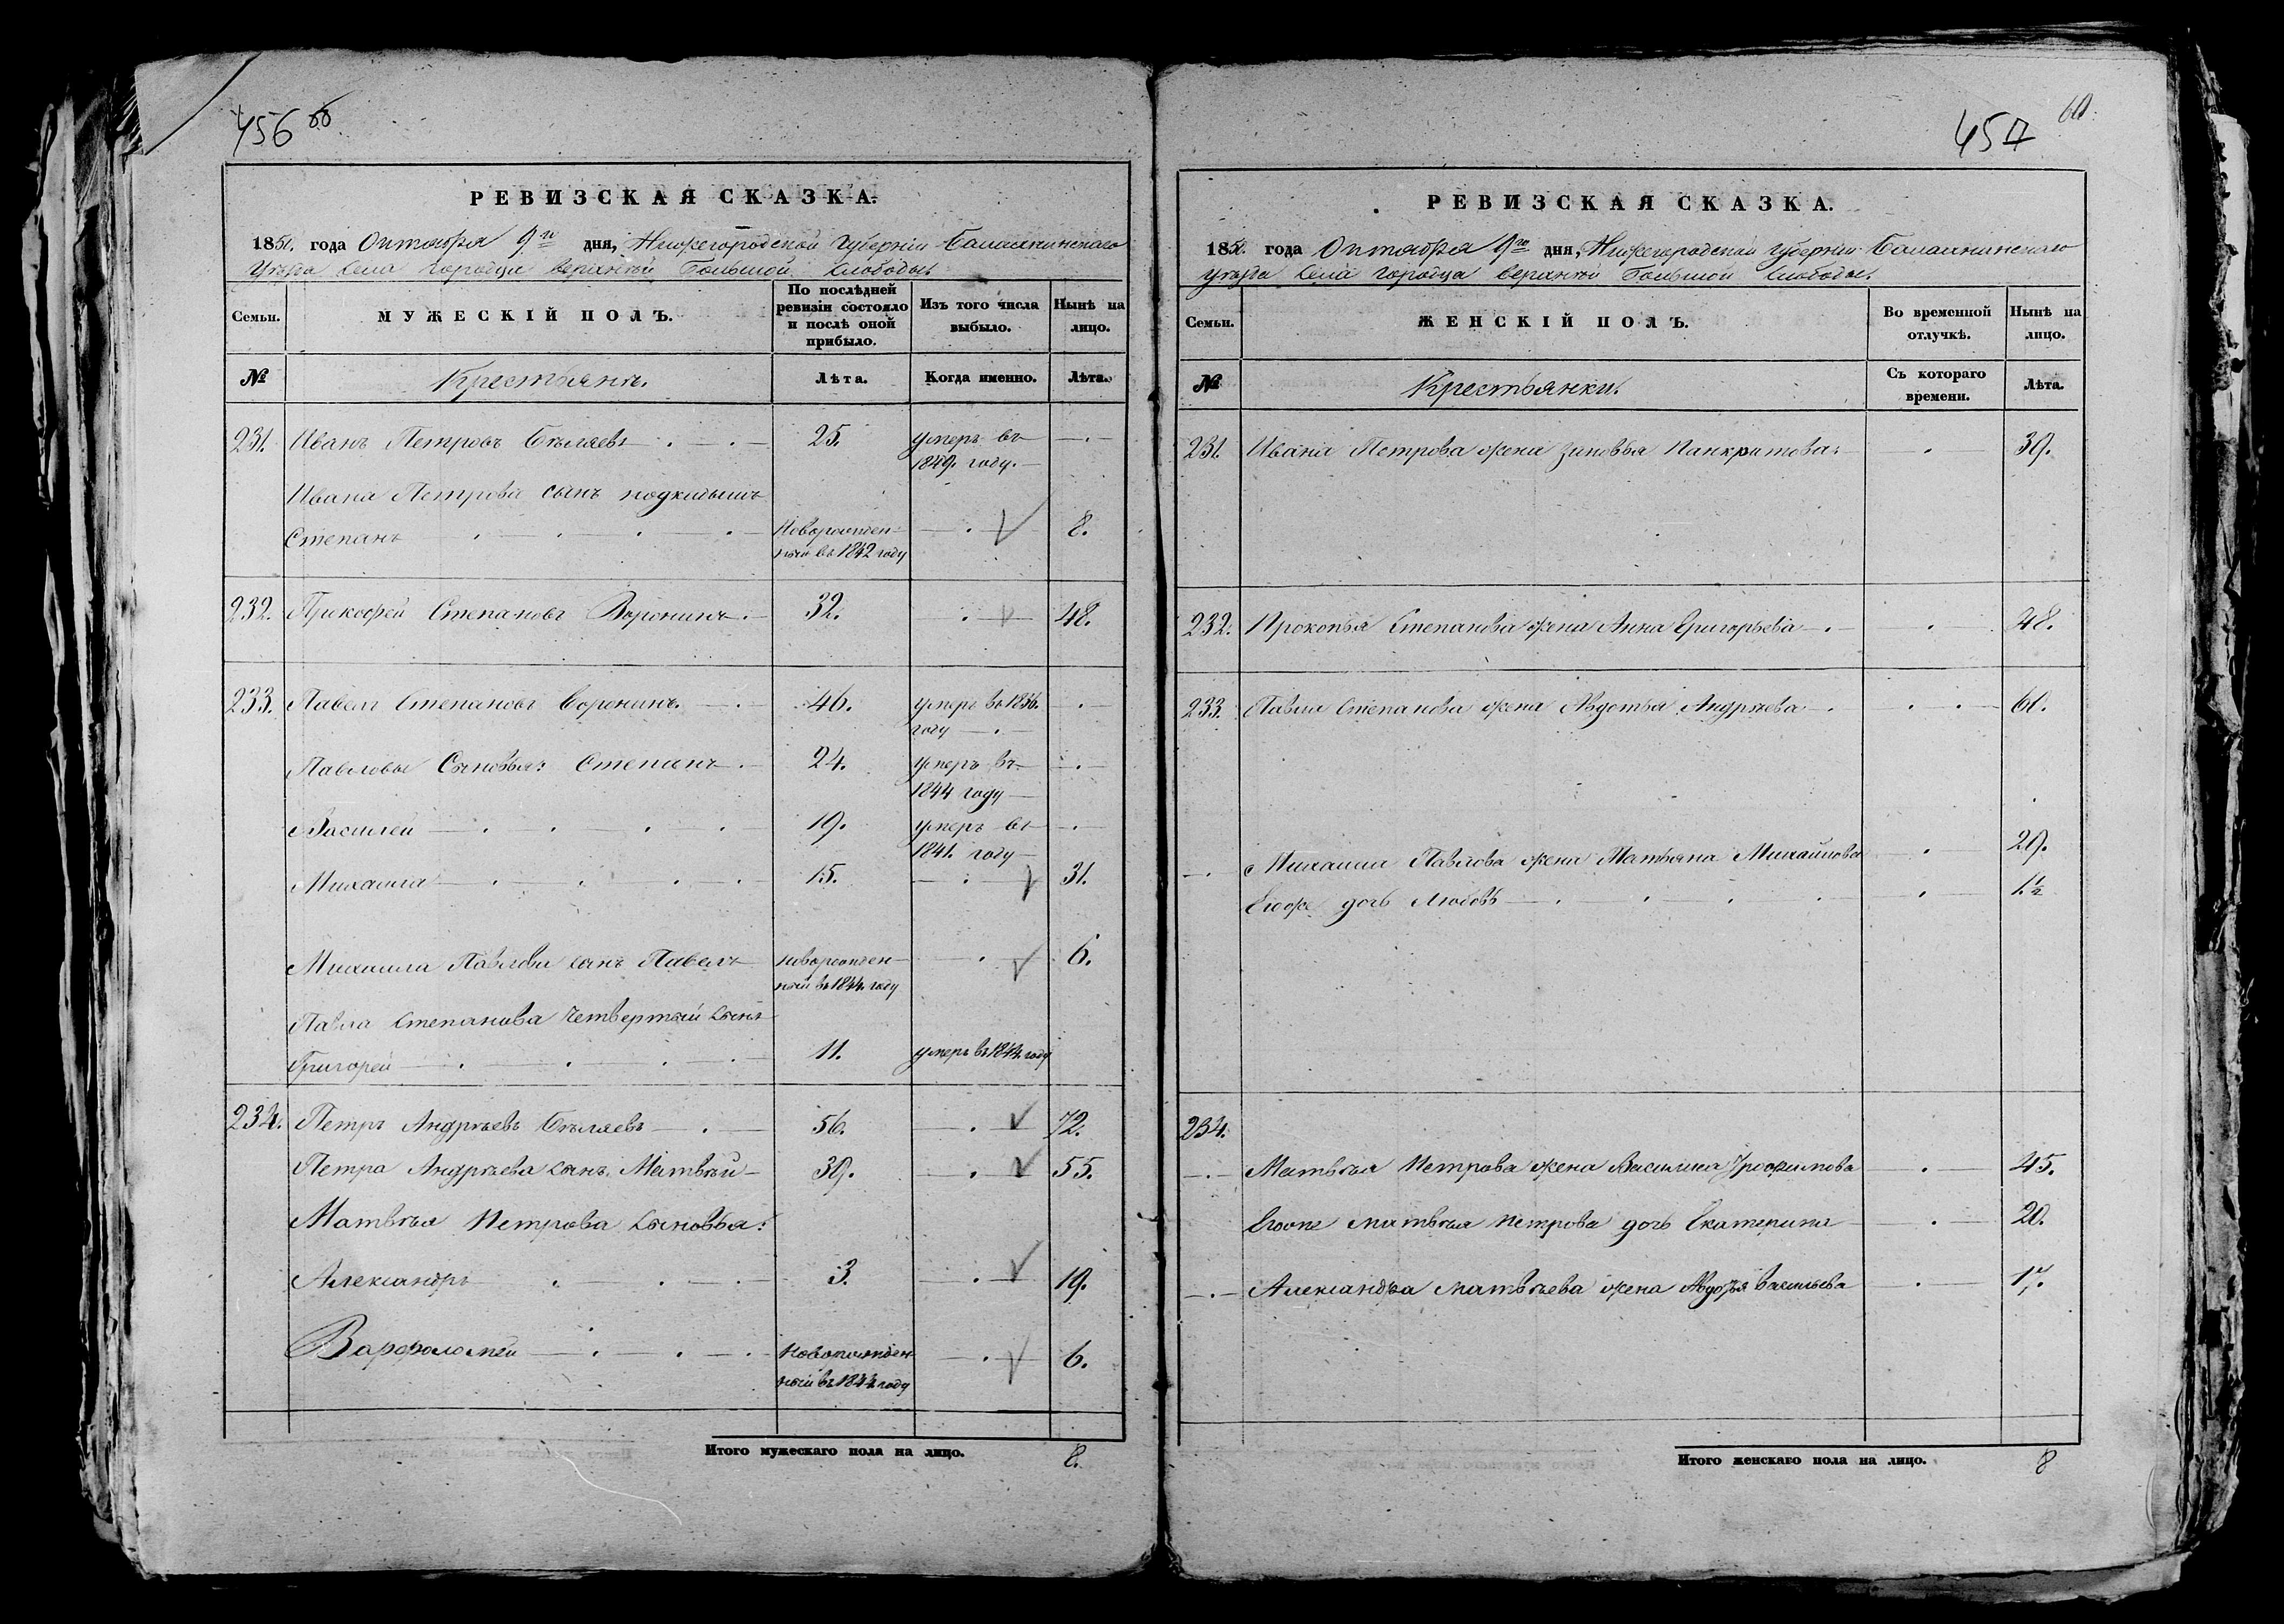 456
РЕВИЗСКАЯ СКАЗКА.
1851. года Октября 9го дня, Нижегородской Губернии Балахнинскаго
Уѣзда Села Городца верхней Большой слободы
Семьи.
МУЖЕСКІЙ ПОЛЪ.
По послѣдней ревизіи состояло и послѣ оной прибыло.
Изъ того числа выбыло.
Нынѣ на лицо.
№
Крестьянъ.
Лѣта.
Когда именно.
Лѣта.
231. Иванъ Петровъ Бѣляевъ 25. умеръ въ
1849. году.
Ивана Петрова сынъ подкидышъ
Степанъ Новорожден- 8.
ный въ 1842 году
232. Прокофей Степановъ Воронинъ. 32. 48.
233. Павелъ Степановъ Воронинъ. 46. умеръ въ 1836.
году
Павловы Сыновья: Степанъ 24. умеръ въ
1844 году
Василей 19. умеръ въ
1841. году
Михаила 15. 31.
Михаила Павлова сынъ Павелъ новорожден- 6.
ный въ 1844. году
Павла Степанова четвертый сынъ
Григорей 11. умеръ въ 1844 году
234. Петръ Андреевъ Бѣляевъ 56. 72.
Петра Андреева сынъ Матвѣй 39. 55.
Матвѣя Петрова сыновья:
Александръ 3. 19.
Варфоломей Новорожден- 6.
ный въ 1844 году
Итого мужескаго пола на лицо. 8.
457
60
РЕВИЗСКАЯ СКАЗКА.
185 года Октября 9го дня, Нижегородской Губернии Балахнинскаго
уѣзда Села Городца верхней Большой слободы.
Семьи.
ЖЕНСКІЙ ПОЛЪ.
Во временной отлучкѣ.
Нынѣ на лицо.
№
Крестьянки.
Съ котораго времени.
Лѣта.
231. Ивана Петрова жена Зиновья Панкратова 39.
232. Прокопья Степанова жена Анна Григорьева 48.
233. Павла Степанова жена Авдотья Андреева 60.
Михаила Павлова жена Татьяна Михайлова 29.
Егож дочь Любовь 1 1/2
234.
Матвѣя Петрова жена Василиса Трофимова 45.
Матвѣя Петрова дочь Екатерина 20.
Александра Матвѣева жена Авдотья Васильева 17.
Итого женскаго пола на лицо. 8